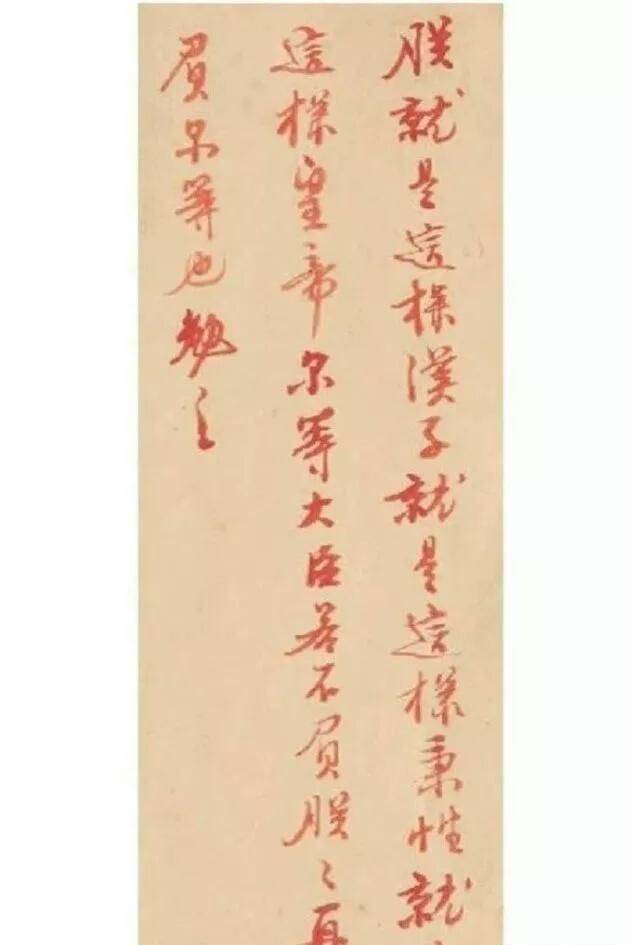 朕就是這樣漢子就是這樣秉性就
這樣皇帝尔等大臣若不負朕〻再
負尔等也勉之